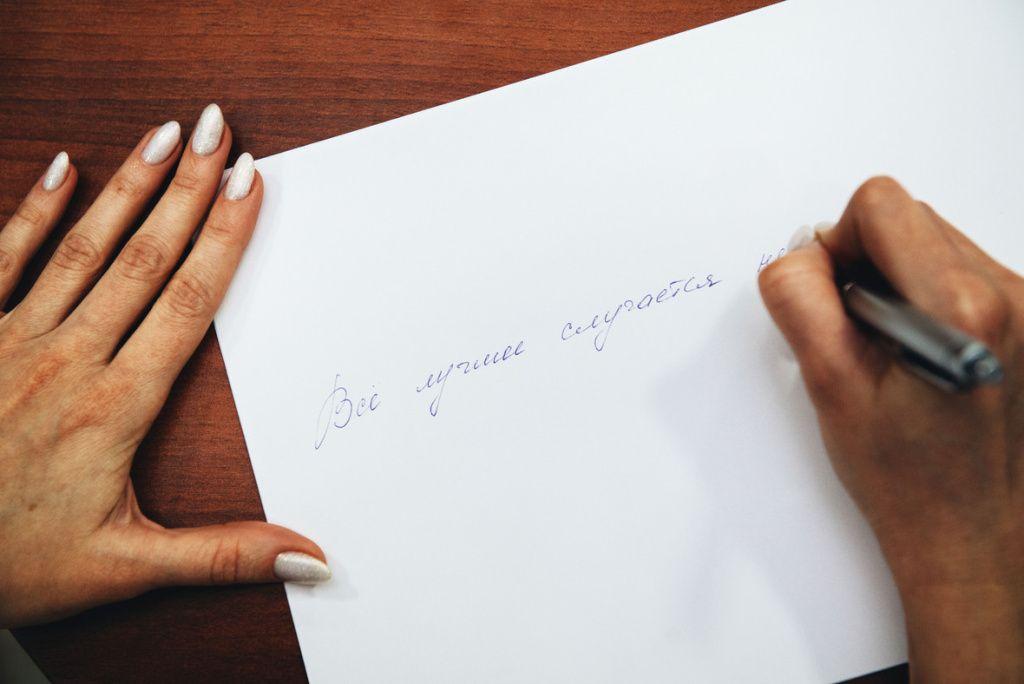 Всё лучшее случается не